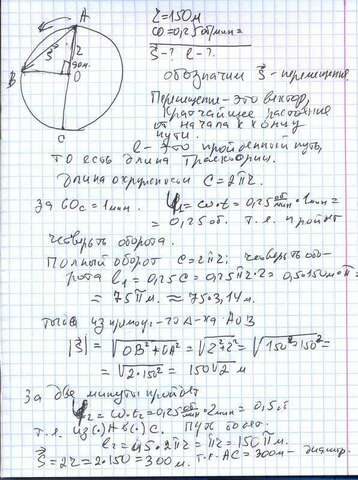 A
r = 150 м
ω = 0,25 об/мин
S⃗ - ? l - ?
S⃗
r
90°
B
O
C
обозначим S⃗ - перемещение
Перемещение - это вектор,
кратчайшее расстояние
от начала к концу
пути.
l - это пройденный путь,
то есть длина траектории.
Длина окружности C = 2πr.
За 60с = 1 мин. φ₁ = ω·t = 0,25 об/мин · 1 мин =
= 0,25 об. т.е. пройдёт
четверть оборота.
Полный оборот C = 2πr; четверть обо-
рота l₁ = 0,25C = 0,25π·2·r = 0,5·150м·π =
= 75π м. ≈ 75·3,14 м.
из прямоуг-го Δ-ка AOB
|S⃗| = √OB²+OA² = √r²+r² = √150²+150² =
= √2·150² = 150√2 м
За две минуты пройдёт
φ₂ = ω·t₂ = 0,25 об/мин · 2 мин = 0,5 об
т.е. из (·) A в (·) C. Путь будет:
l₂ = 0,5·2πr = πr = 150π м.
S⃗ = 2r = 2·150 = 300 м. т.к. AC = 300м - диаметр.